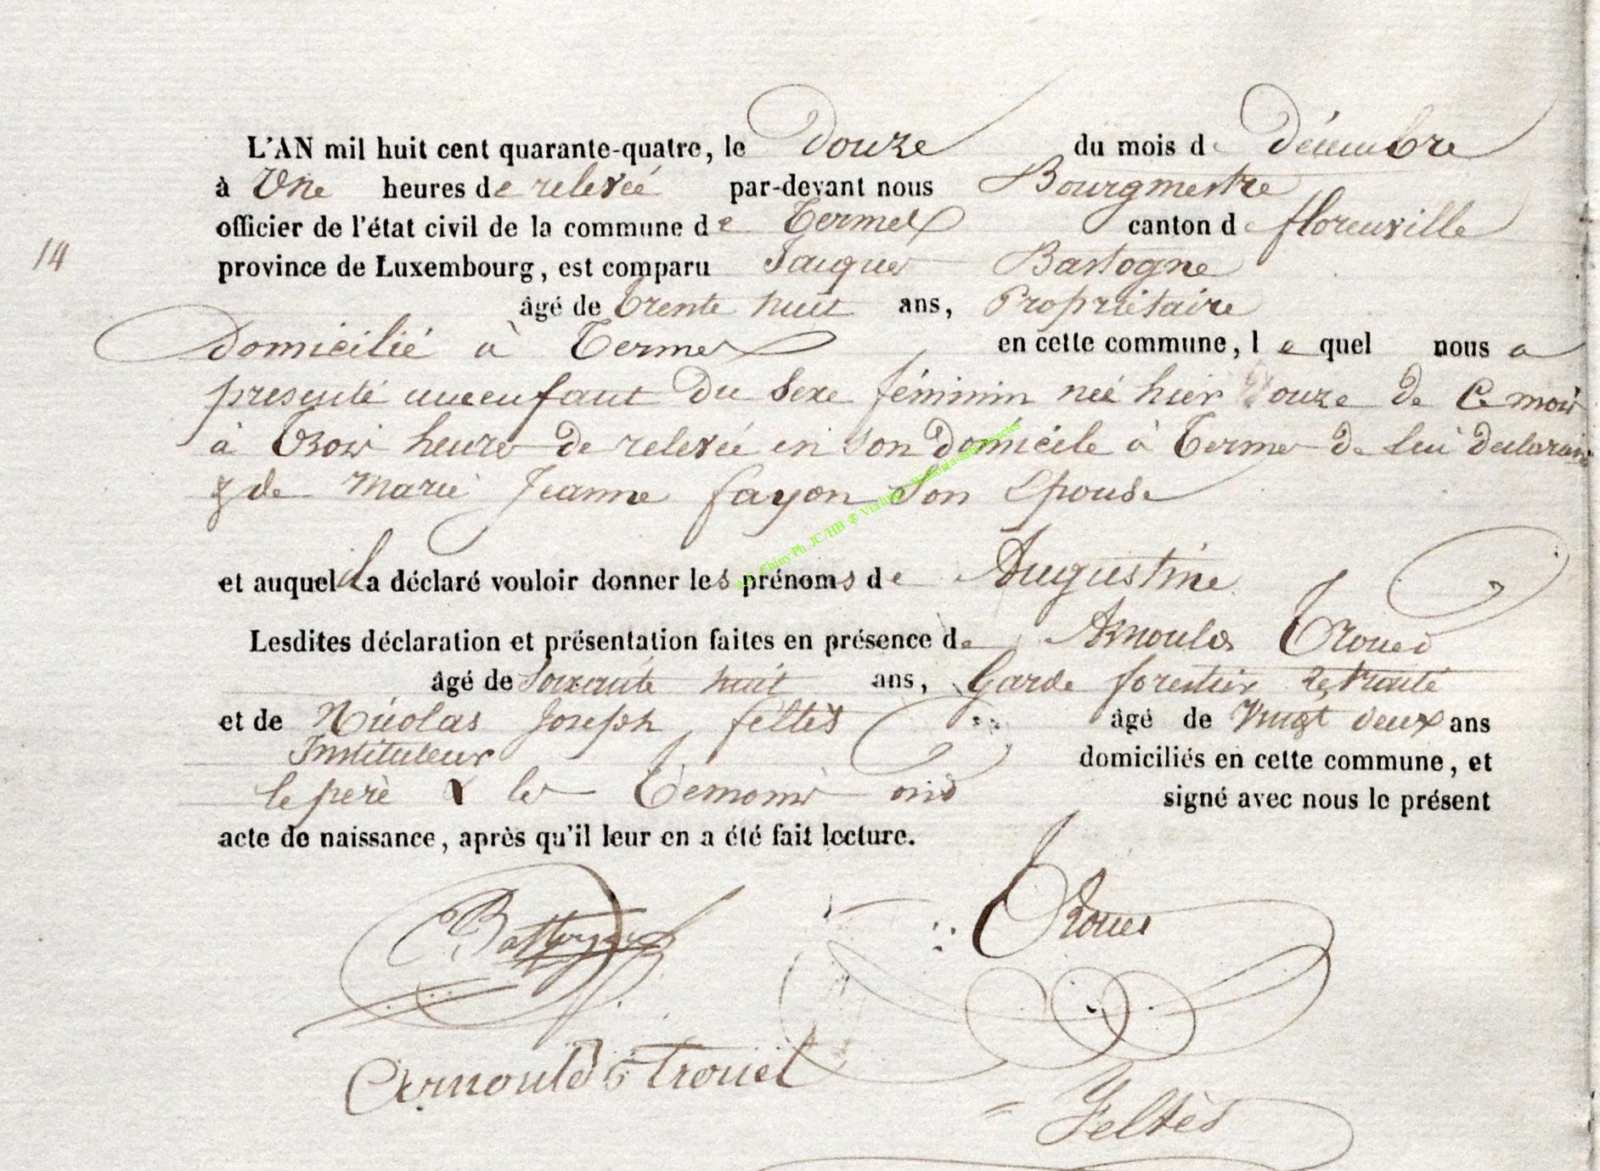 L'AN mil huit cent quarante-quatre, le Douze du mois de Décembre
à Une heures de relevée par-devant nous Bourgmestre
officier de l'état civil de la commune de Termes canton de florenville
14
province de Luxembourg, est comparu Jacques Bastogne
âgé de trente huit ans, Propriétaire
Domicilié à Termes en cette commune, lequel nous a
presenté un enfant Du Sexe féminin née hier Douze de Ce mois
à Trois heures de relevée en son domicile à Termes de lui declarant
& de Marie Jeanne fayon Son Epouse
et auquel il a déclaré vouloir donner les prénoms de Augustine
Lesdites déclaration et présentation faites en présence de Arnould Troued
âgé de Soixante huit ans, Garde forestier retraité
et de Nicolas Joseph feltès âgé de Vingt deux ans
Instituteur domiciliés en cette commune, et
le père & les Temoins ont signé avec nous le présent
acte de naissance, après qu'il leur en a été fait lecture.
Bastogne
Arnould Trouet
Feltès